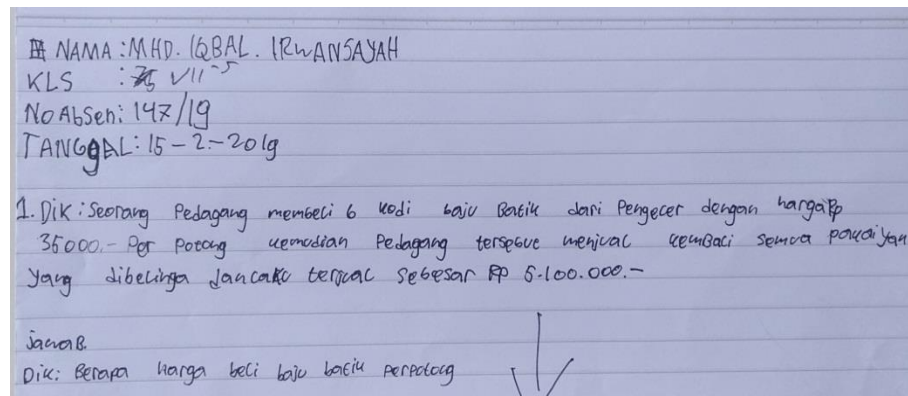 NAMA : MHD. IQBAL. IRWANSAYAH
KLS : VII-5
No Absen : 147/19
TANGGAL : 15-2-2019
1. Dik : Seorang Pedagang membeli 6 kodi baju Batik dari Pengecer dengan harga Rp
35000.- Per Potong kemudian Pedagang tersebut menjual kembali semua pakaiyan
yang dibelinga dan terjual sebesar Rp 5.100.000.-
jawaB.
Dik : Berapa harga beli baju batik perpotong